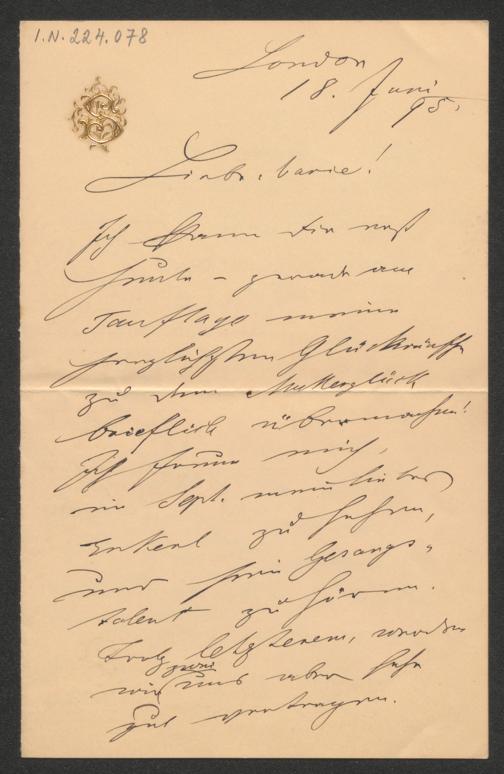 I.N. 224.078
London
18. Juni
95.
Liebe Marie!
Ich kann Dir erst
heute – gerade am
Tauftage meine
herzlichsten Glückwünsche
zu dem Mutterglück
brieflich übermachen!
Ich freue mich,
im Sept. mein liebes
Enkerl zu sehen,
und sein Gesangs-
talent zu hören.
Trotz letzterem, werden
wir zwei uns aber sehr
gut vertragen.